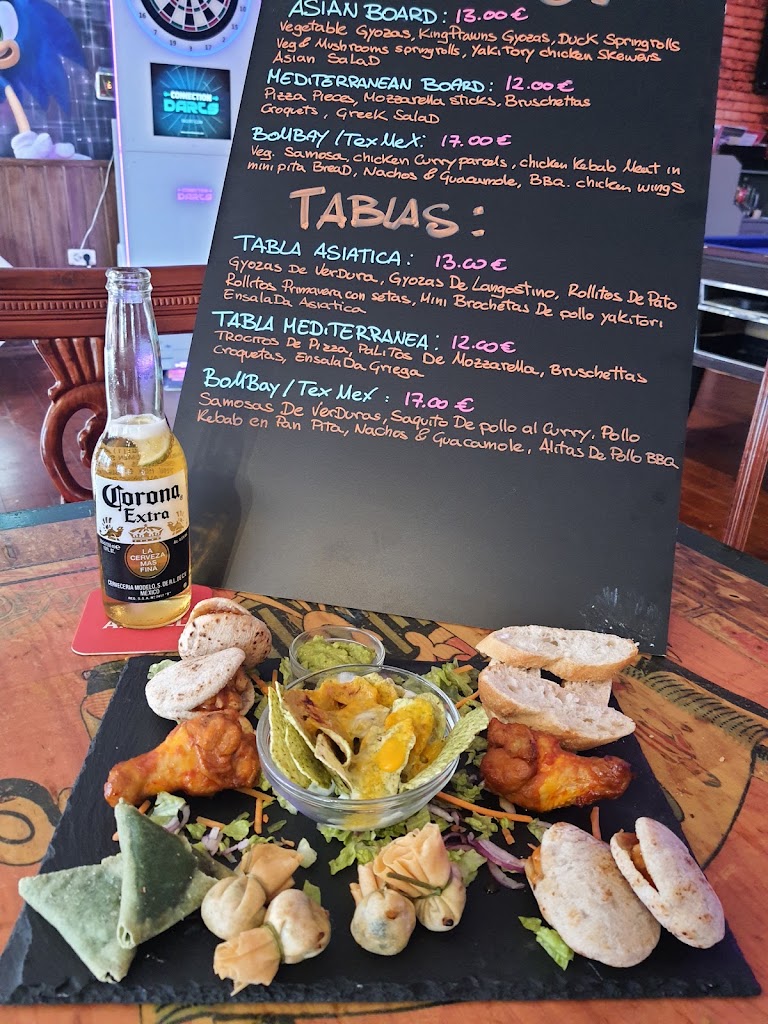 ASIAN BOARD: 13.00€
Vegetable Gyozas, King Prawns Gyozas, Duck Spring rolls
Veg & Mushrooms springrolls, Yakitory chicken Skewers
Asian Salad
MEDITERRANEAN BOARD: 12.00€
Pizza Pieces, Mozzarella sticks, Bruschettas
Croquets, Greek Salad
BOMBAY / Tex Mex: 17.00€
Veg. Samosa, chicken Curry parcels, chicken Kebab Meat in
mini pita Bread, Nachos & Guacamole, BBa. chicken wings
TABLAS:
TABLA ASIATICA: 13.00€
Gyozas De Verdura, Gyozas De Langostino, Rollitos De Pato
Rollitos Primavera con setas, Mini Brochetas De pollo yakitori
Ensalada Asiatica
TABLA MEDITERRANEA: 12.00€
Trocitos de Pizza, Palitos De Mozzarella, Bruschettas
Croquetas, Ensalada Griega
BOMBay / Tex Mex: 17.00€
Samosas De Verduras, Saquito De pollo al Curry, Pollo
Kebab en Pan Pita, Nachos & Guacamole, Alitas De Pollo BBQ
CONNECTION
DARTS
DARTS
Corona
Extra
LA
CERVEZA
MAS
FINA
CERVECERIA MODELO, S. DE R.L. DE C.V.
MEXICO